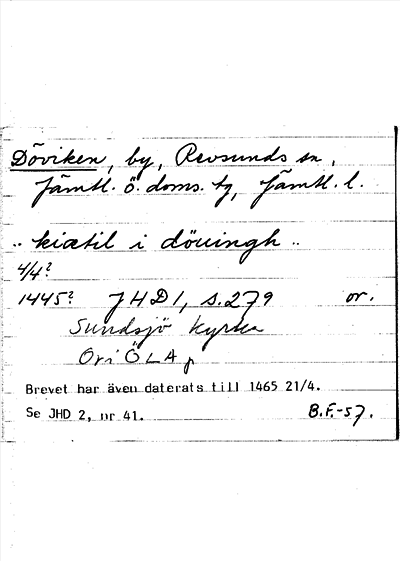 Döviken, by, Revsunds sn,
Jämtl. ö. doms. tg, Jämtl. l.
.. kiætil i döuingh ..
4/4?
1445? JHD 1, s. 279 or.
Sundsjö kyrka
Or i ÖLA p
Brevet har även daterats till 1465 21/4.
Se JHD 2, nr 41. B.F.-57.